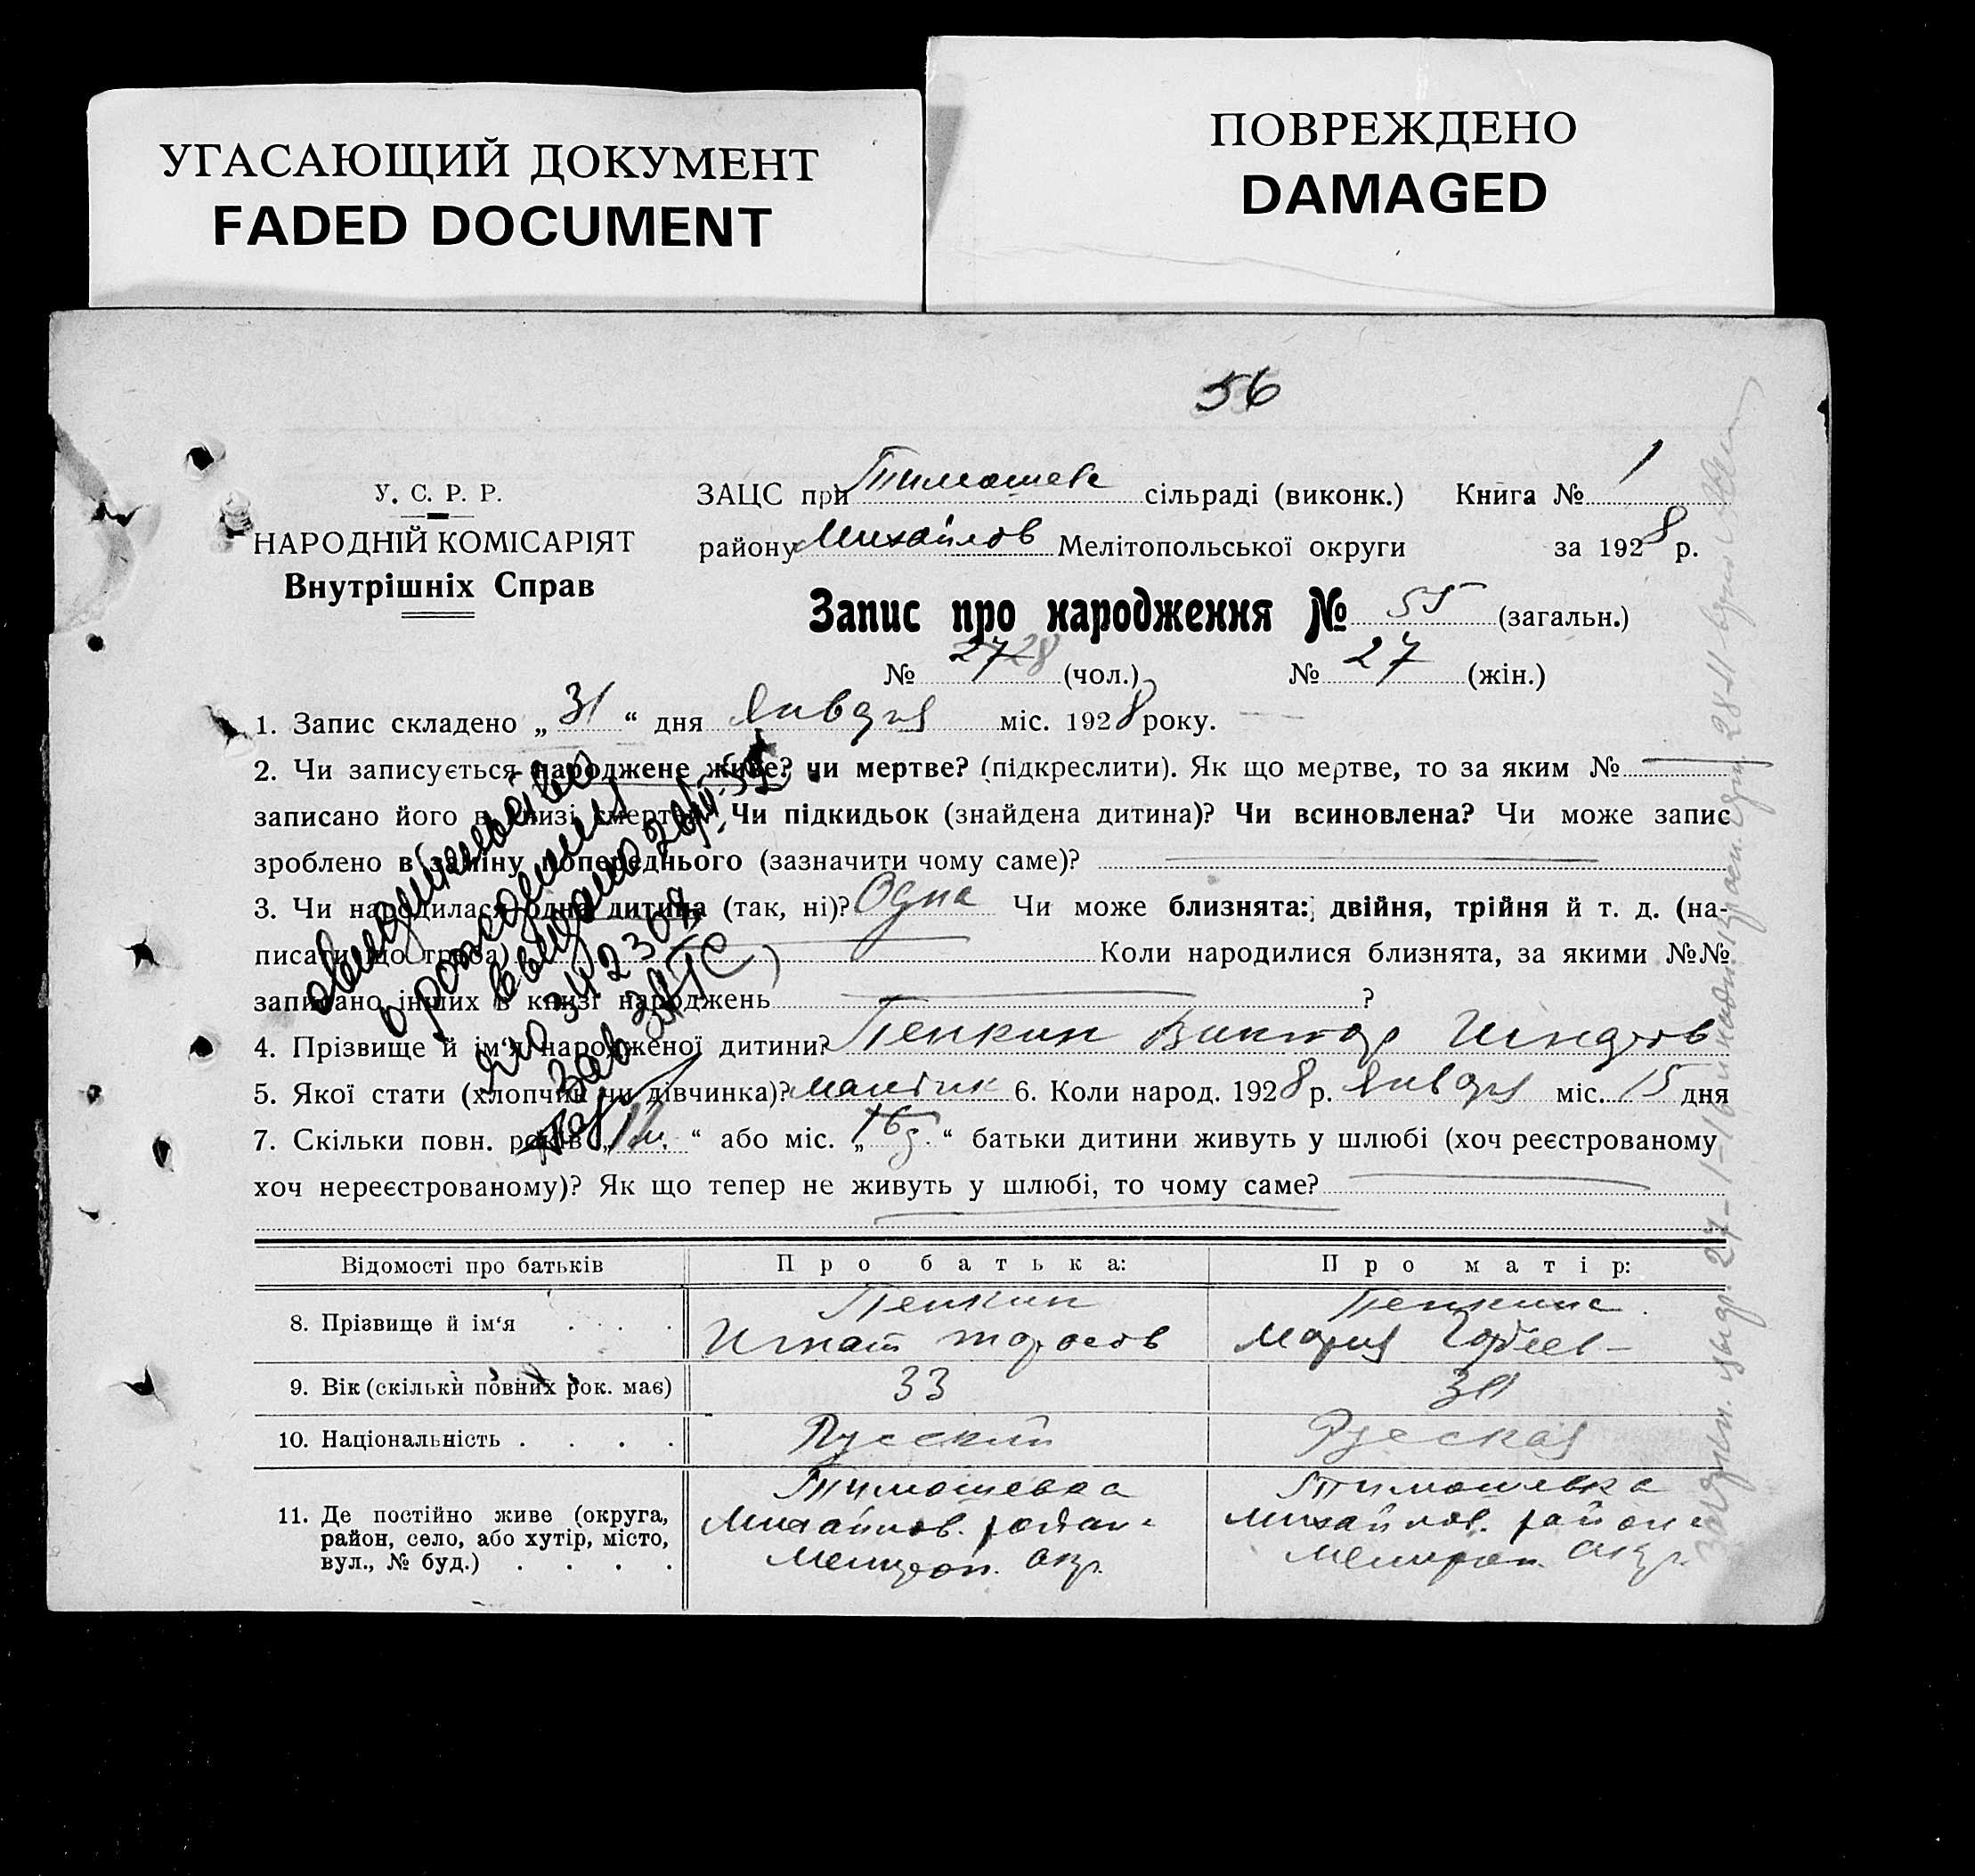 УГАСАЮЩИЙ ДОКУМЕНТ
FADED DOCUMENT
ПОВРЕЖДЕНО
DAMAGED
56
У. С. Р. Р.
НАРОДНІЙ КОМІСАРІЯТ
Внутрішніх Справ
ЗАЦС при Тимошевс сільраді (виконк.) Книга № 1
району Михайлов Мелітопольської округи за 1928 р.
Запис про народження № 55 (загальн.)
№ 27 28 (чол.) № 27 (жін.)
1. Запис складено „ 31 “ дня Января міс. 1928 року.
2. Чи записується народжене живе? чи мертве? (підкреслити). Як що мертве, то за яким №
записано його в книзі смертей. Чи підкидьок (знайдена дитина)? Чи всиновлена? Чи може запис
зроблено в заміну попереднього (зазначити чому саме)?
3. Чи народилася одна дитина (так, ні)? Одна Чи може близнята: двійня, трійня й т. д. (на-
писати що треба) Коли народилися близнята, за якими №№
записано інших в книзі народжень ?
4. Прізвище й ім‘я народженої дитини? Пенкин Виктор Игнатов
5. Якої стати (хлопчик чи дівчинка)? мальчик 6. Коли народ. 1928 р. Января міс. 15 дня
7. Скільки повн. років „ 11 “ або міс. „ “ батьки дитини живуть у шлюбі (хоч реєстрованому
хоч нереєстрованому)? Як що тепер не живуть у шлюбі, то чому саме?
свидетельство
о рождении
выдано
ЯЮ 342307
Зав ЗАГС
Відомості про батьків Про батька: Про матір:
8. Прізвище й ім‘я . . . . Пенкин Пенкина
Игнат Мария
9. Вік (скільки повних рок. має) 33
10. Національність . . . . Русский Русская
11. Де постійно живе (округа, Тимошевка Тимошевка
район, село, або хутір, місто, Михайлов. района Михайлов. района
вул., № буд.) . . . . Мелитоп. окр. Мелитоп. окр.